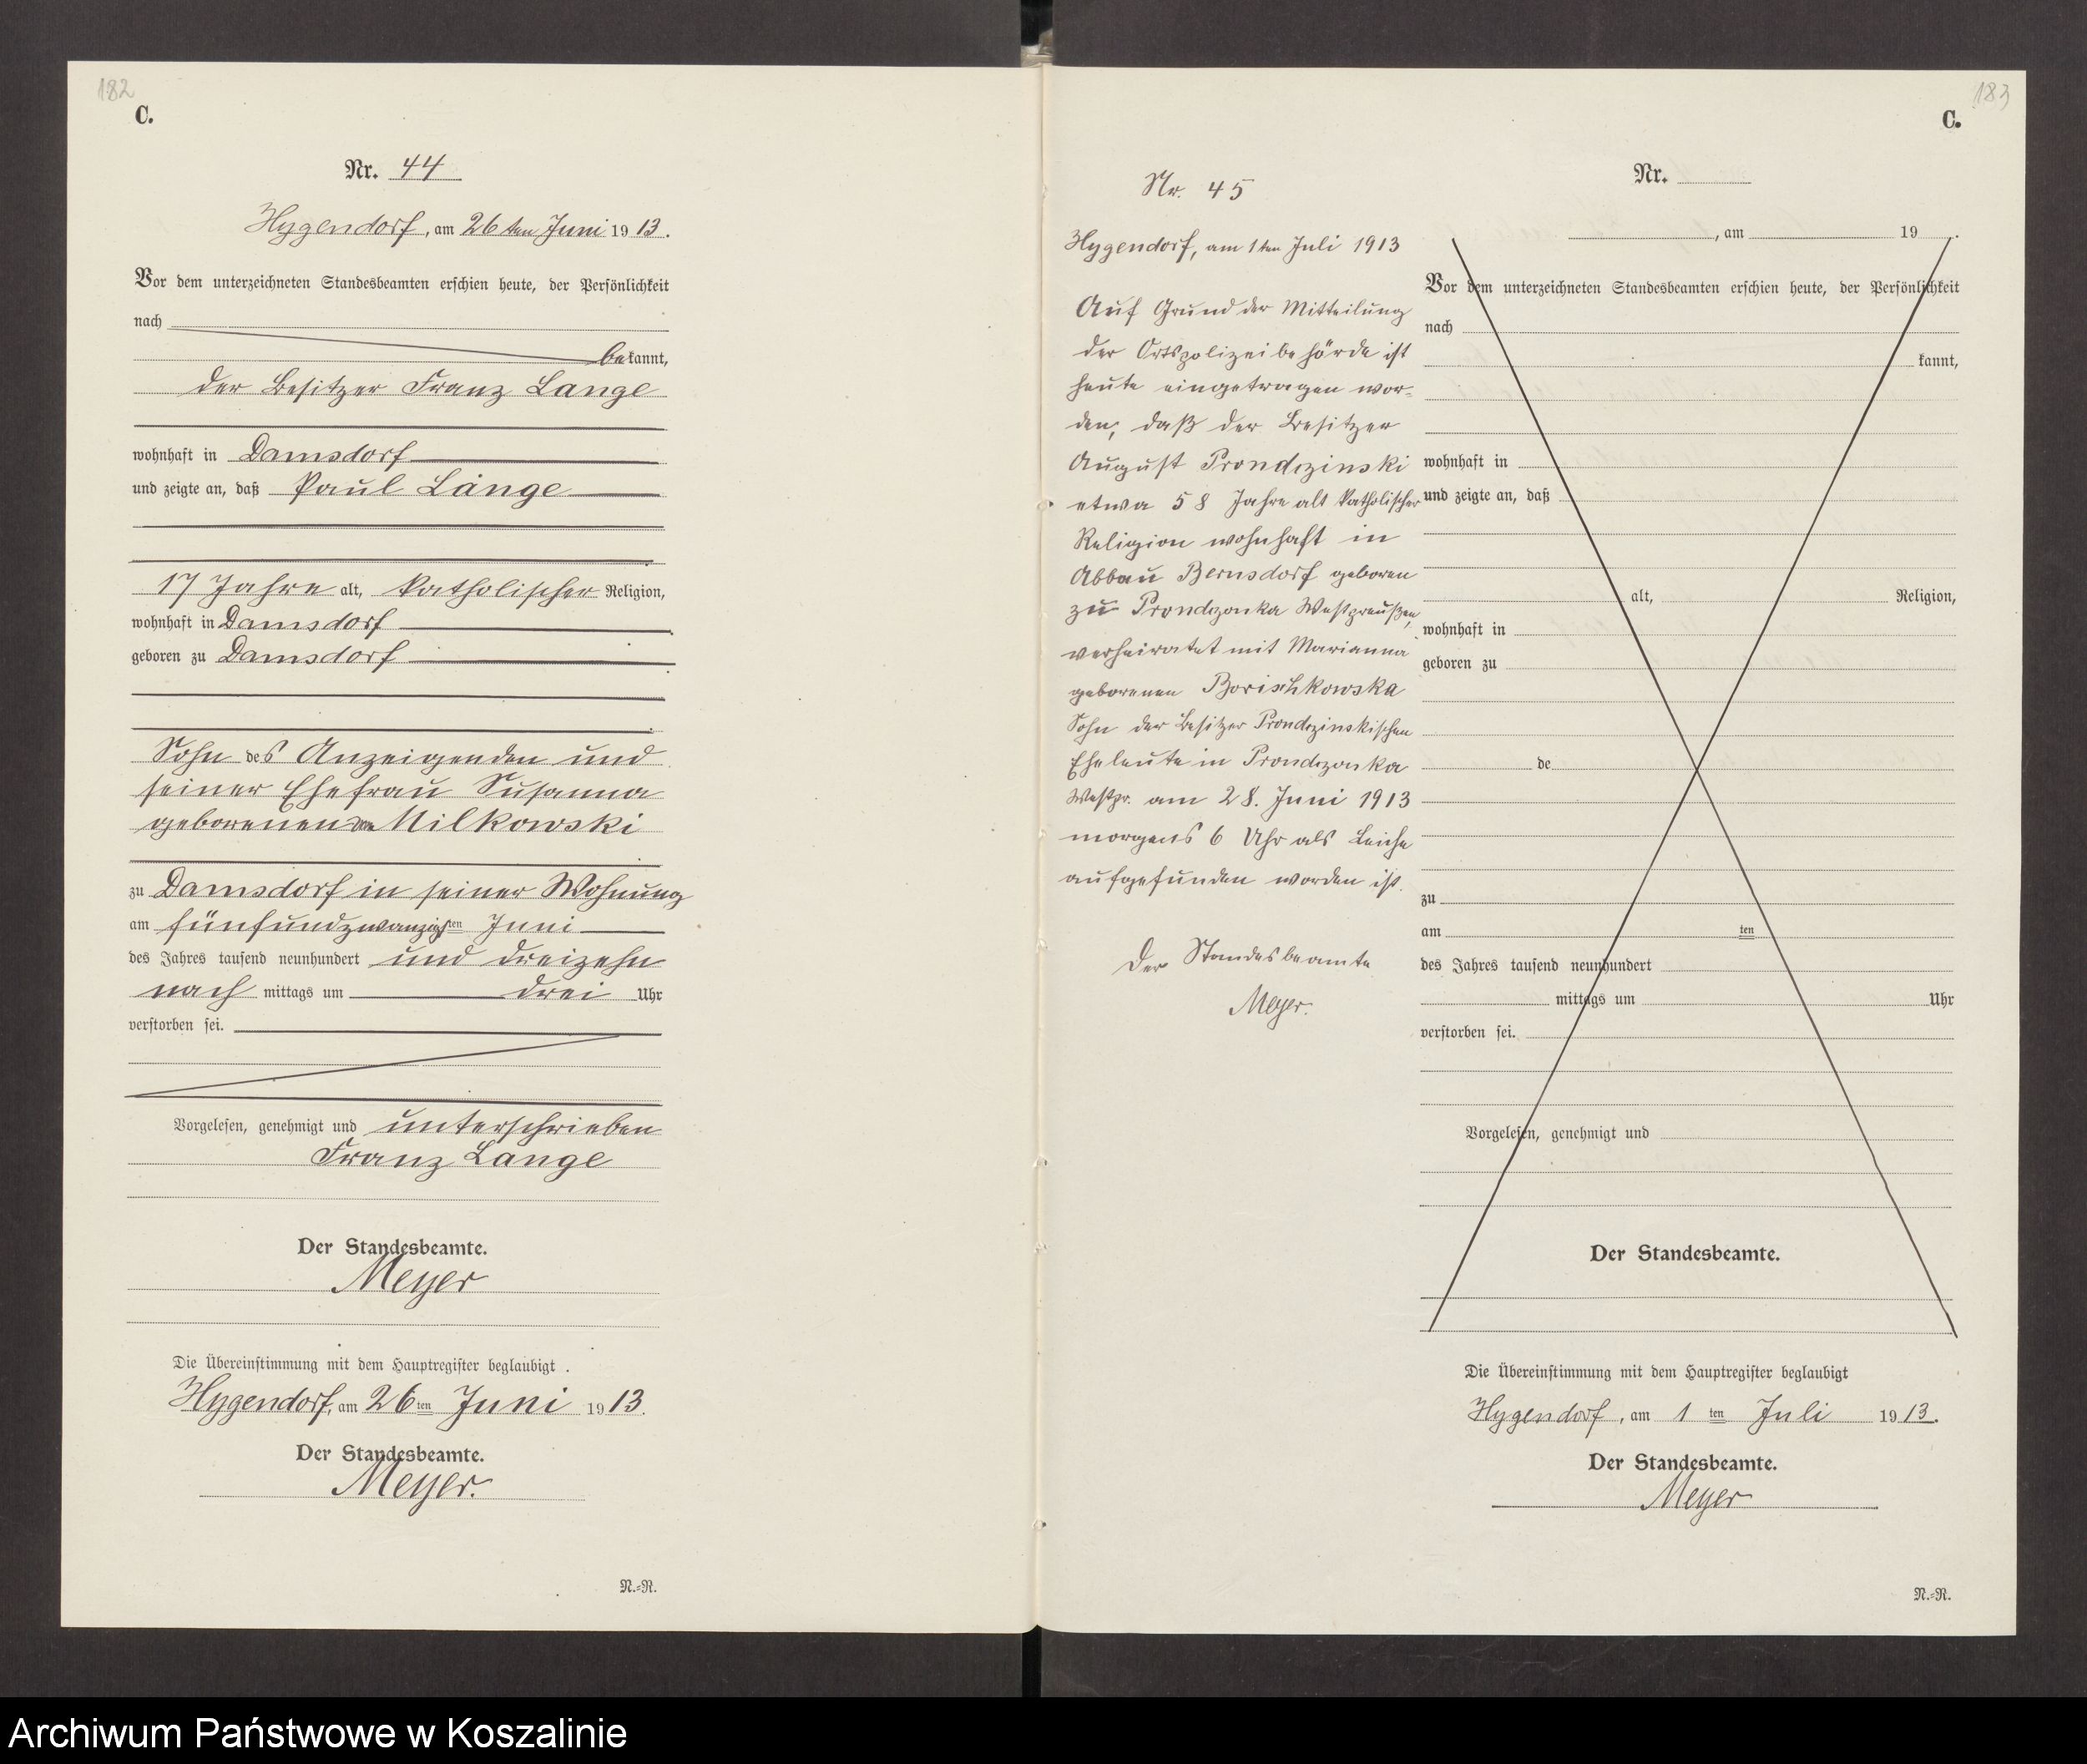 182
C.
Nr. 44
Hygendorf, am 26ten Juni 1913.
Vor dem unterzeichneten Standesbeamten erschien heute, der Persönlichkeit
nach
bekannt,
der Besitzer Franz Lange
wohnhaft in Damsdorf
und zeigte an, daß Paul Lange
17 Jahre alt, katholischer Religion,
wohnhaft in Damsdorf
geboren zu Damsdorf
Sohn des Anzeigenden und
seiner Ehefrau Susanna
geborenen von Milkowski
zu Damsdorf in seiner Wohnung
am fünfundzwanzigsten Juni
des Jahres tausend neunhundert und dreizehn
nach mittags um drei Uhr
verstorben sei.
Vorgelesen, genehmigt und unterschrieben
Franz Lange
Der Standesbeamte.
Meyer
Die Übereinstimmung mit dem Hauptregister beglaubigt .
Hygendorf, am 26ten Juni 1913.
Der Standesbeamte.
Meyer.
N.=R.
183
C.
Nr. 45
Hygendorf, am 1ten Juli 1913
Auf Grund der Mitteilung
der Ortspolizeibehörde ist
heute eingetragen wor-
den, daß der Besitzer
August Prondzinski
etwa 58 Jahre alt katholischer
Religion wohnhaft in
Abbau Bernsdorf geboren
zu Prondzonka Westpreußen,
verheiratet mit Marianna
geborenen Borischkowska
Sohn der Besitzer Prondzinskischen
Eheleute in Prondzonka
Westpr. am 28. Juni 1913
morgens 6 Uhr als Leiche
aufgefunden worden ist.
Der Standesbeamte
Meyer.
Nr.
, am 19 .
Vor dem unterzeichneten Standesbeamten erschien heute, der Persönlichkeit
nach
kannt,
wohnhaft in
und zeigte an, daß
alt, Religion,
wohnhaft in
geboren zu
de
zu
am ten
des Jahres tausend neunhundert
mittags um Uhr
verstorben sei.
Vorgelesen, genehmigt und
Der Standesbeamte.
Die Übereinstimmung mit dem Hauptregister beglaubigt
Hygendorf, am 1ten Juli 1913.
Der Standesbeamte.
Meyer
N.=R.
Archiwum Państwowe w Koszalinie